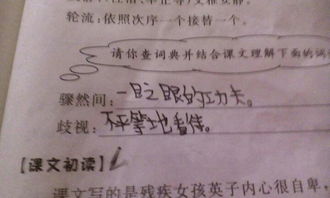 轮流:依照次序一个接替一个。
请你查词典并结合课文理解下面的词
骤然间:一眨眼的工力夫。
歧视:不平等地看待。
【课文初读】
课文写的是残疾女孩英子内心很自卑,